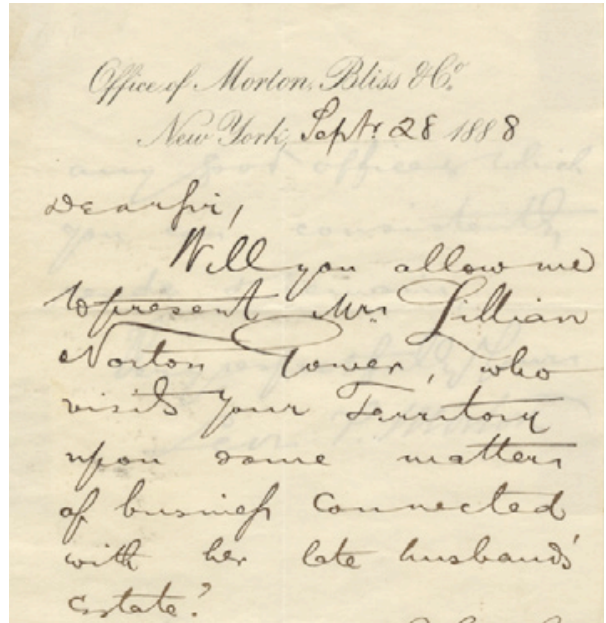 Office of Morton, Bliss & Co.
New York, Sept. 28 1888
Dear Sir,
Will you allow me
to present Mrs Lillian
Norton Gower, who
visits your Territory
upon some matters
of business connected
with her late husbands'
estate?